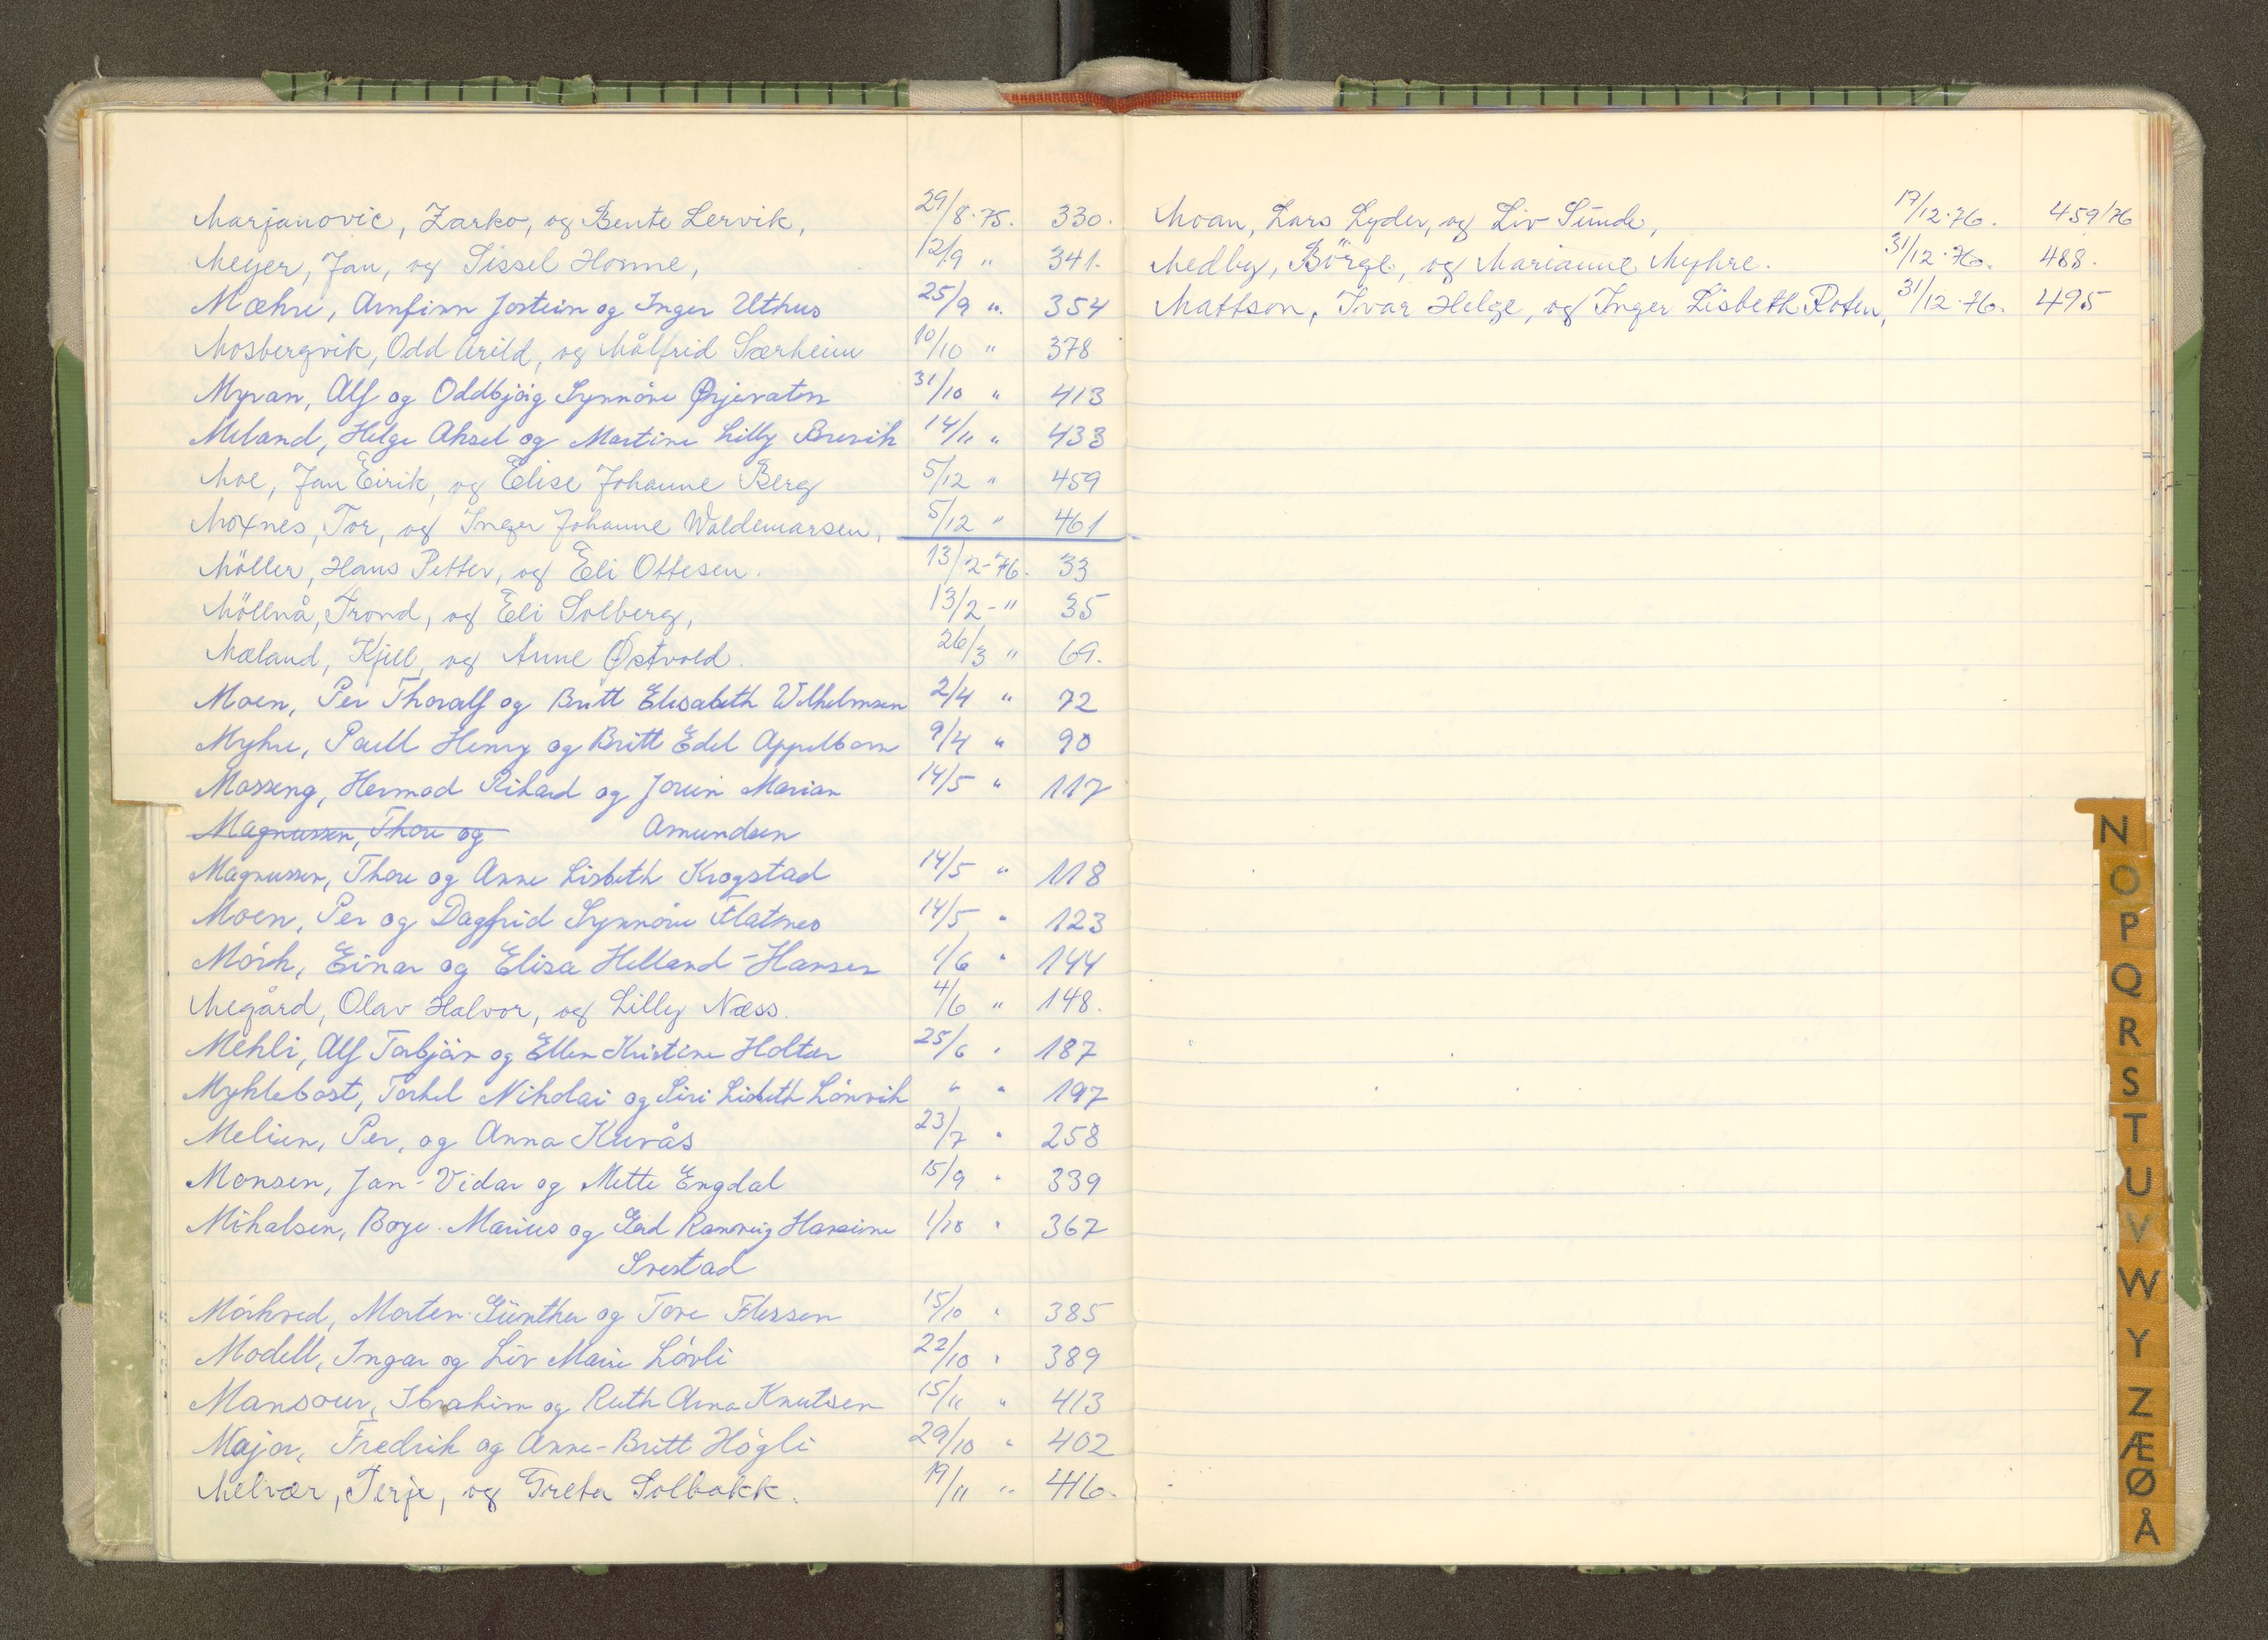 Marjanovic, Zarko, og Bente Lervik, 29/8-75. 330.
Meyer, Jan, og Sissel Honne, 12/9 " 341.
Mæhre, Arnfinn Jostein og Inger Uthus 25/9 " 354
Mosbergvik, Odd Arild, og Målfrid Særheim 10/10 " 378
Myran, Alf og Oddbjörg Synnöve Ørjevaten 31/10 " 413
Meland, Helge Aksel og Martine Lilly Brevik 14/11 " 433
Moe, Jan Eirik, og Elise Johanne Berg 5/12 " 459
Moxnes, Tor, og Inger Johanne Waldemarsen, 5/12 " 461
Möller, Hans Petter, og Eli Ottesen. 13/2-76. 33
Möllnå, Trond, og Eli Solberg, 13/2-" 35
Mæland, Kjell, og Anne Østvold. 26/3 " 69.
Moen, Per Thoralf og Britt Elisabeth Wilhelmsen 2/4 " 72
Myhre, Paull Henry og Britt Edel Appelbom 9/4 " 90
Masseng, Hermod Rikard og Jorun Marian 14/5 " 117
Magnussen, Thore og Amundsen
Magnussen, Thore og Anne Lisbeth Krogstad 14/5 " 118
Moen, Per og Dagfrid Synnöve Flatnes 14/5 " 123
Mörk, Einar og Elisa Helland-Hansen 1/6 " 144
Megård, Olav Halvor, og Lilly Næss. 4/6 " 148.
Mehli, Alf Torbjörn og Ellen Kristine Holter 25/6 " 187
Myklebost, Torkel Nikolai og Siri Lisbeth Lönvik " " 197
Melien, Per, og Anna Kurås 23/7 " 258
Monsen, Jan-Vidar og Mette Engdal 15/9 " 339
Mikalsen, Boye Marius og Gerd Rannveig Hansine 1/10 " 367
Svestad
Mörkved, Morten Günther og Tove Flessen 15/10 " 385
Modell, Ingar og Liv Marie Lövli 22/10 " 389
Mansour, Ibrahim og Ruth Arna Knutsen 15/11 " 413
Major, Fredrik og Anne-Britt Högli 29/10 " 402
Melvær, Terje, og Greta Solbakk. 19/11 " 416.
Moan, Lars Lyder, og Liv Sunde, 17/12-76. 459/76
Medby, Börge, og Marianne Myhre. 31/12-76. 488.
Mattson, Ivar Helge, og Inger Lisbeth Roten, 31/12-76. 495
N
O
P
Q
R
S
T
U
V
W
Y
Z
Æ
Ø
Å